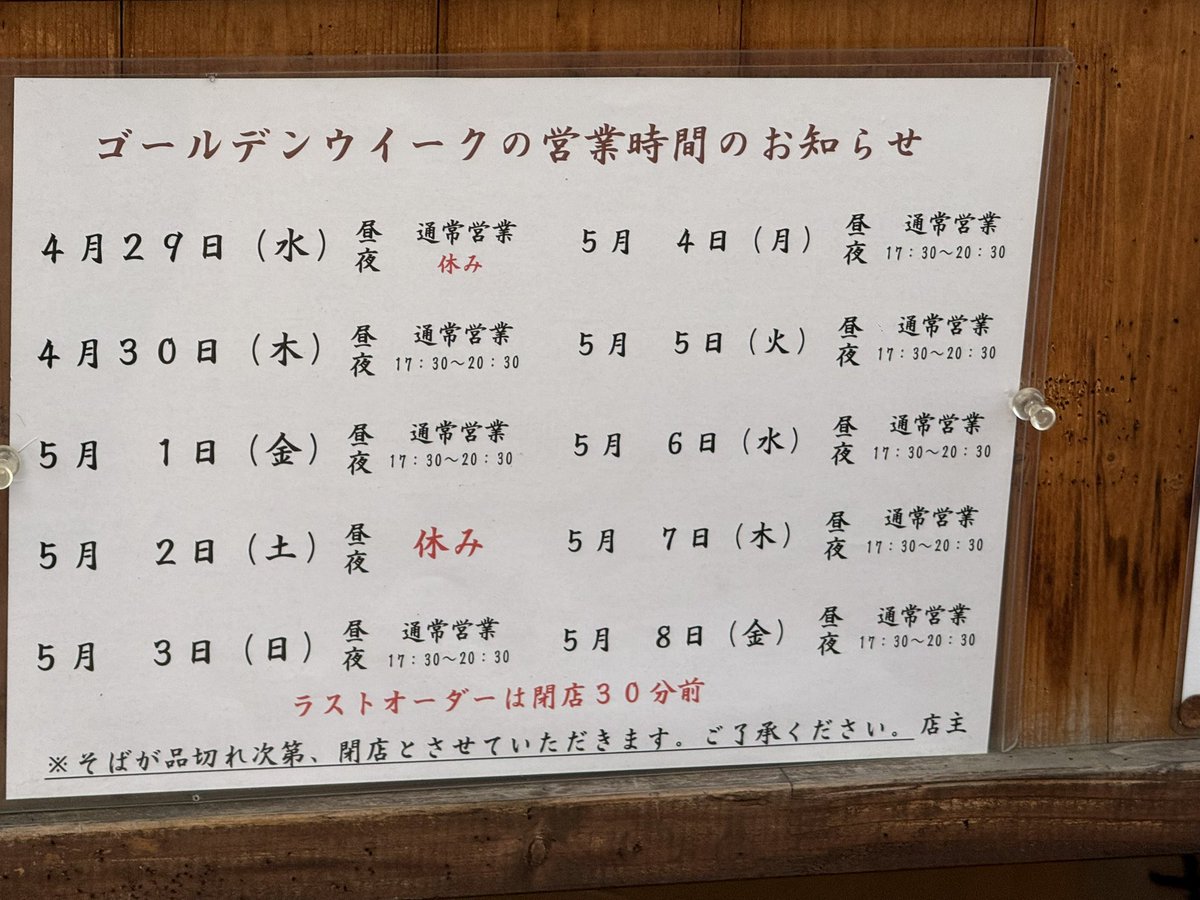 ゴールデンウイークの営業時間のお知らせ
4月29日（水） 昼 通常営業
夜 休み
4月30日（木） 昼 通常営業
夜 17：30～20：30
5月 1日（金） 昼 通常営業
夜 17：30～20：30
5月 2日（土） 昼夜 休み
5月 3日（日） 昼 通常営業
夜 17：30～20：30
5月 4日（月） 昼 通常営業
夜 17：30～20：30
5月 5日（火） 昼 通常営業
夜 17：30～20：30
5月 6日（水） 昼 通常営業
夜 17：30～20：30
5月 7日（木） 昼 通常営業
夜 17：30～20：30
5月 8日（金） 昼 通常営業
夜 17：30～20：30
ラストオーダーは閉店30分前
※そばが品切れ次第、閉店とさせていただきます。ご了承ください。 店主